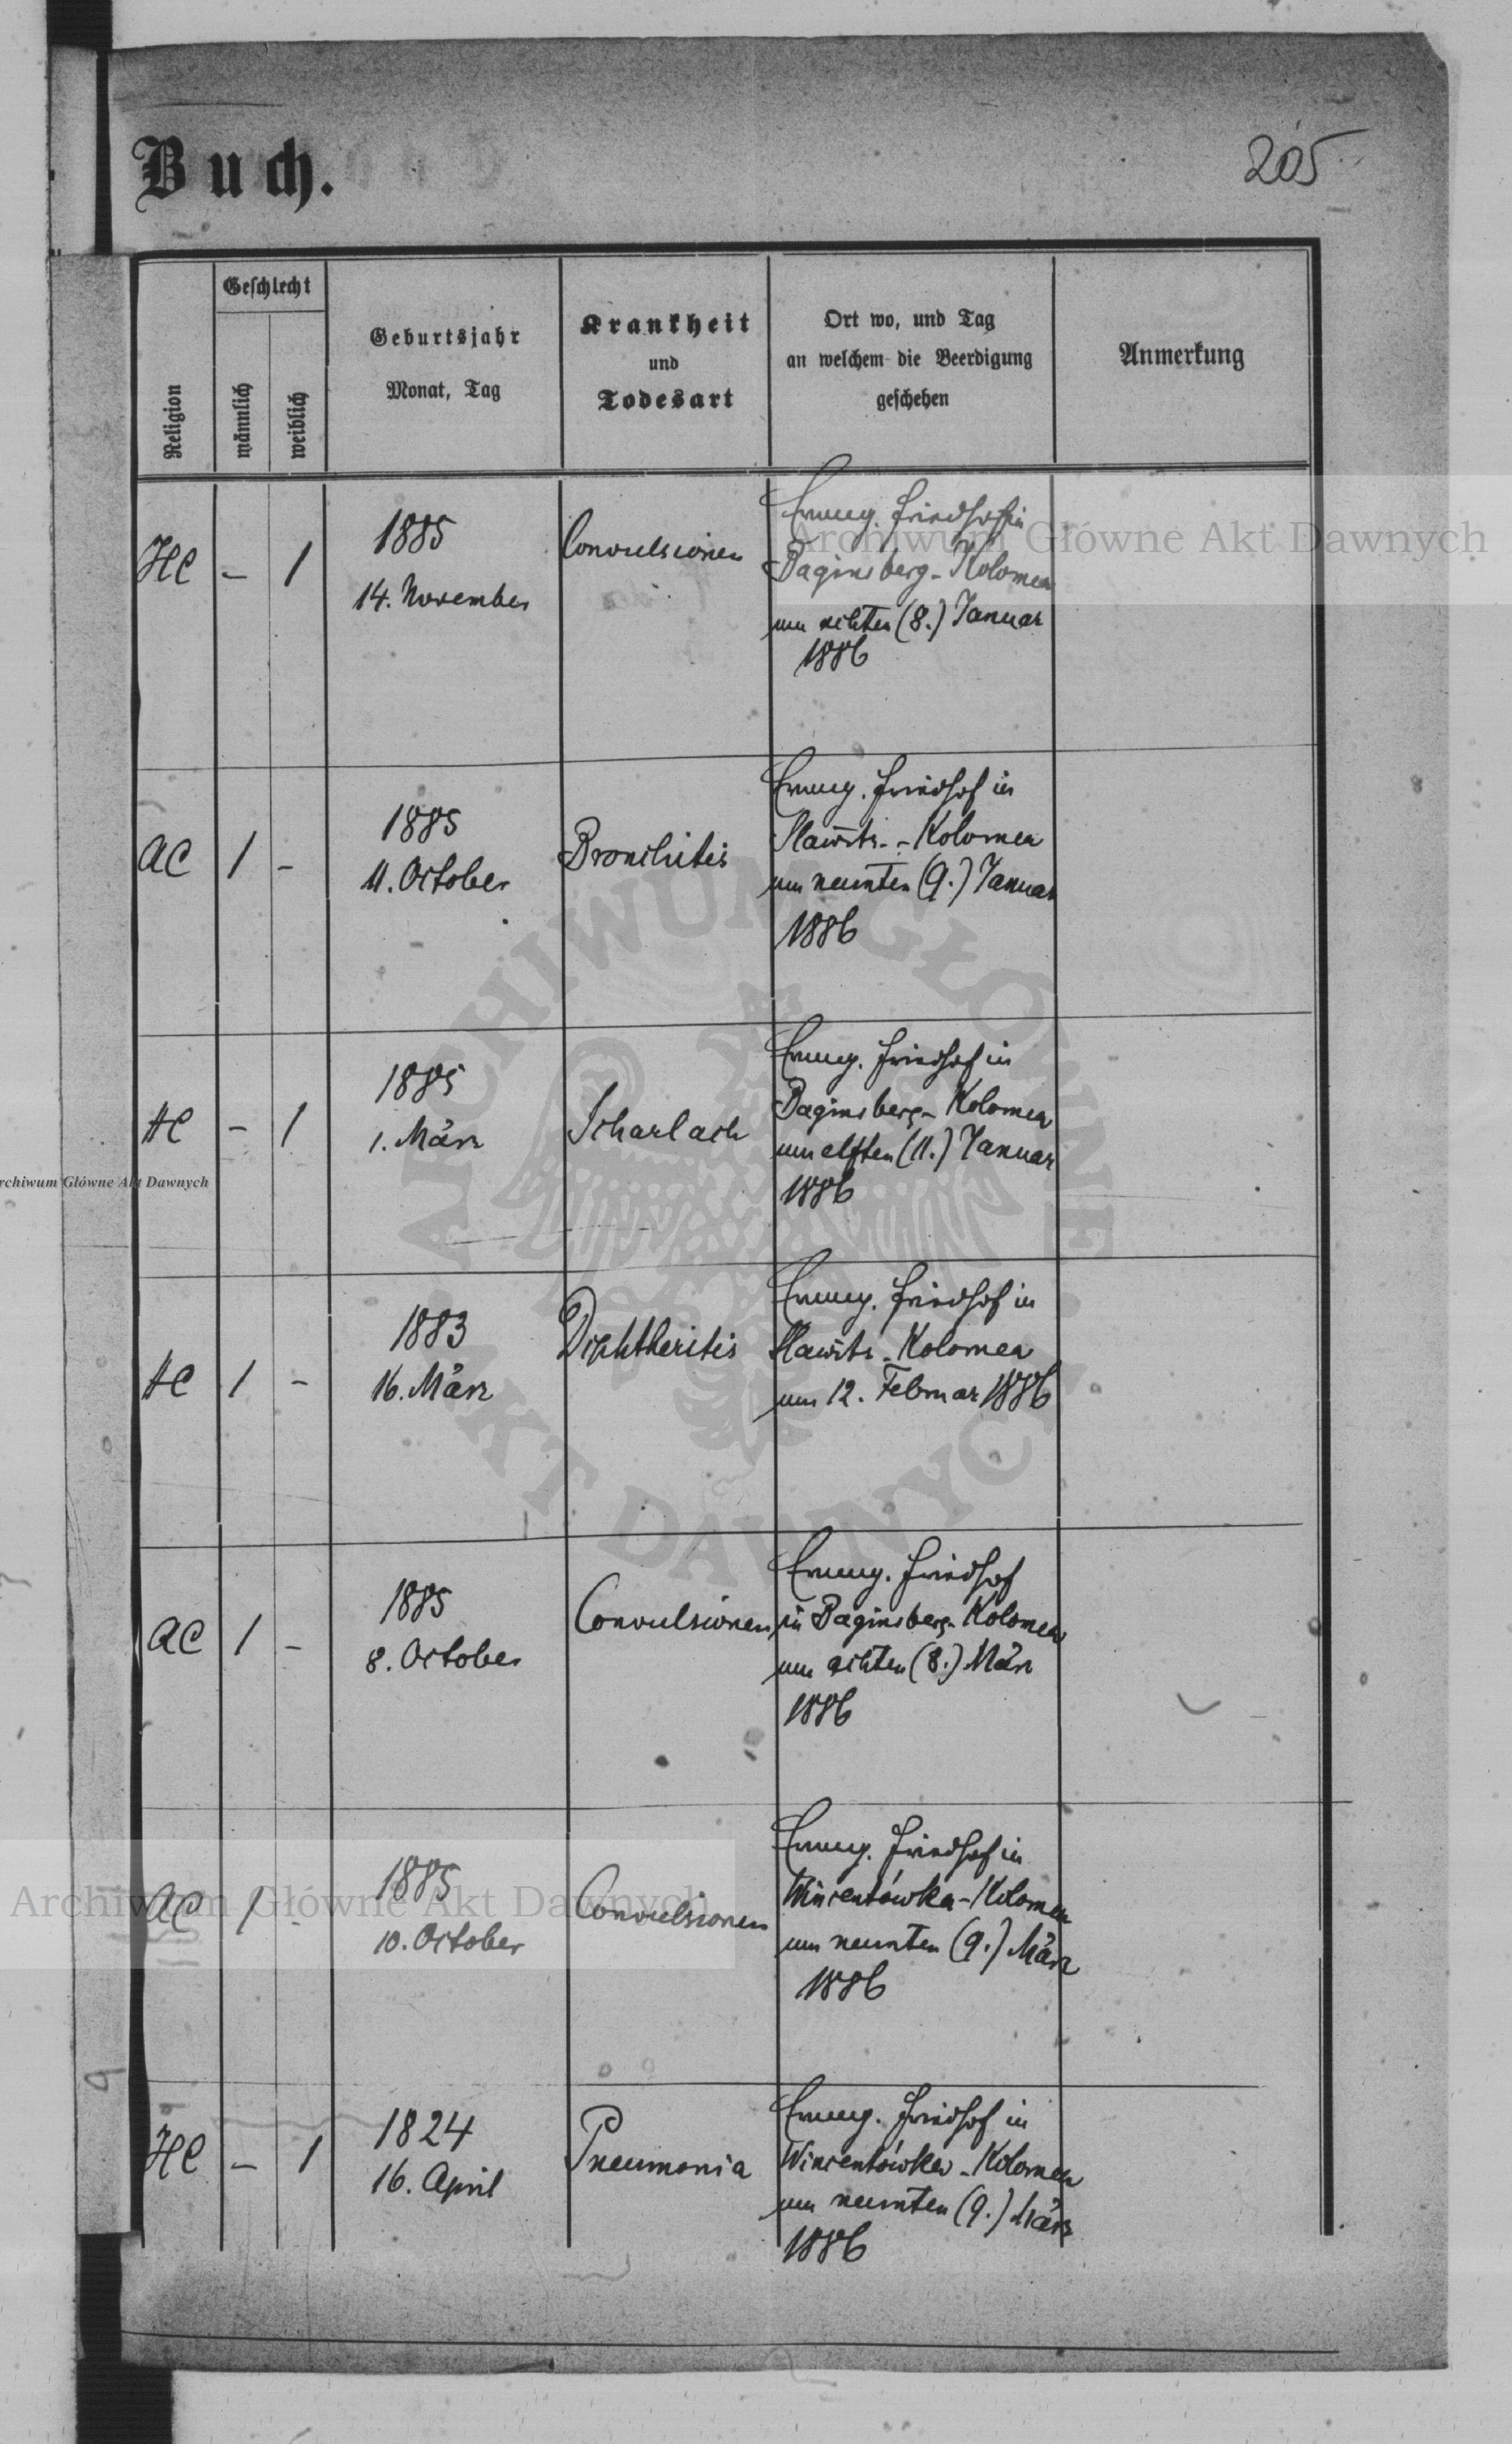 Buch.
205
Religion
Geschlecht
männlich
weiblich
Geburtsjahr
Monat, Tag
Krankheit
und
Todesart
Ort wo, und Tag
an welchem die Beerdigung
geschehen
Anmerkung
HC – 1
1885
14. November
Convulsionen
Evang. Friedhof in
Baginsberg - Kolomea
am achten (8.) Januar
1886
AC 1 –
1885
11. October
Bronchitis
Evang. Friedhof in
Slawitz - Kolomea
am neunten (9.) Januar
1886
HC – 1
1885
1. März
Scharlach
Evang. Friedhof in
Baginsberg - Kolomea
am elften (11.) Januar
1886
HC 1 –
1883
16. März
Diphtheritis
Evang. Friedhof in
Slawitz - Kolomea
am 12. Februar 1886
AC 1 –
1885
8. October
Convulsionen
Evang. Friedhof
in Baginsberg - Kolomea
am achten (8.) März
1886
AC 1 -
1885
10. October
Convulsionen
Evang. Friedhof in
Wincentówka - Kolomea
am neunten (9.) März
1886
HC – 1
1824
16. April
Pneumonia
Evang. Friedhof in
Wincentówka - Kolomea
am neunten (9.) März
1886
Archiwum Główne Akt Dawnych
rchiwum Główne Akt Dawnych
ARCHIWUM GŁÓWNE AKT DAWNYCH
Archiwum Główne Akt Dawnych